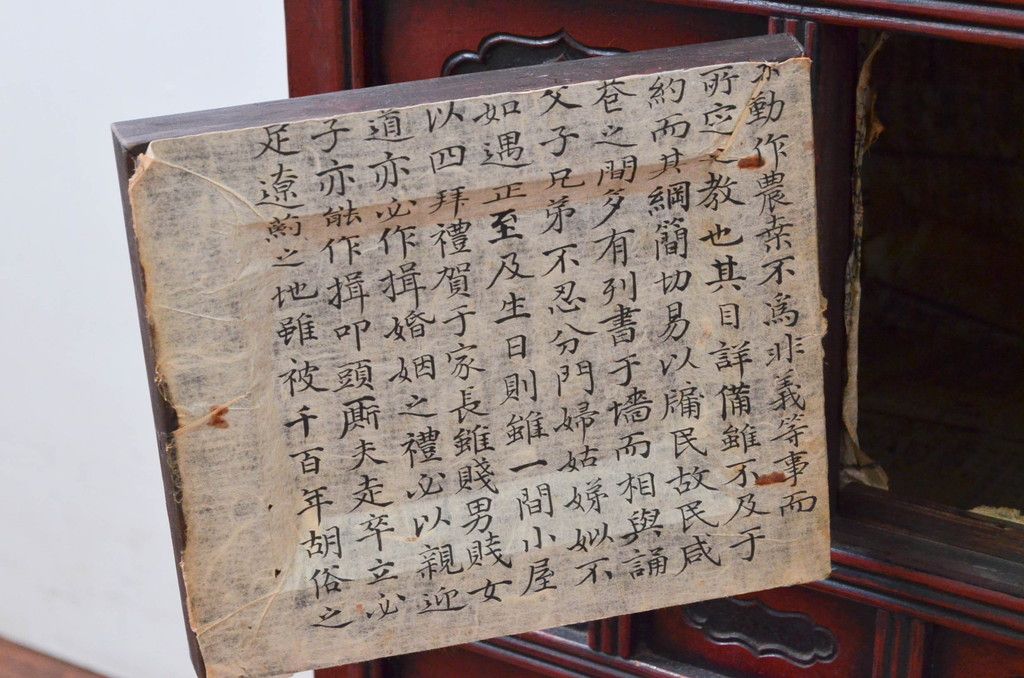 動作農桒不爲非義等事而
所定之教也其目詳備雖不及于
約而其綱簡切易以牖民故民咸
巷之間多有列書于墻而相與誦
父子兄弟不忍分門婦姑娣姒不
如遇正至及生日則雖一間小屋
以四拜禮賀于家長雖賤男賤女
道亦必作揖婚姻之禮必以親迎
子亦能作揖叩頭厮夫走卒立必
足遼薊之地雖被千百年胡俗之